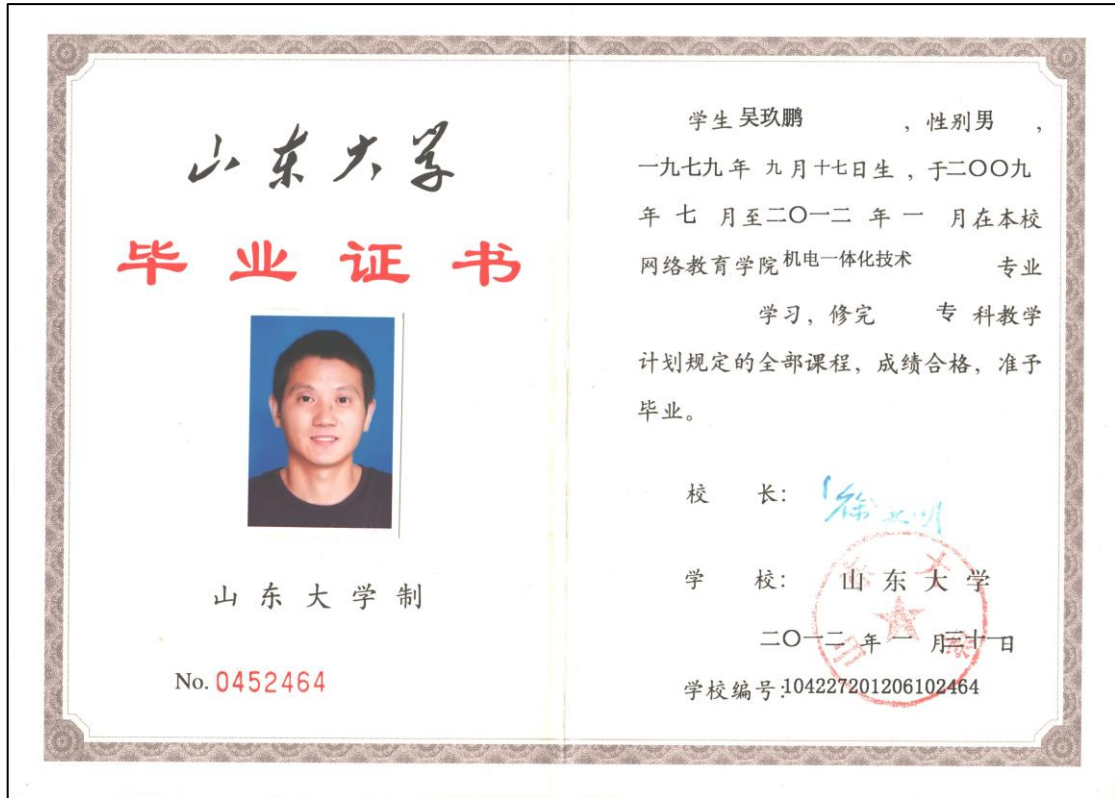 山东大学
毕业证书
山东大学制
No. 0452464
学生 吴玖鹏 ，性别 男 ，
一九七九年 九月十七日生，于二〇〇九
年 七 月至二〇一二 年 一 月在本校
网络教育学院 机电一体化技术 专业
学习，修完 专 科教学
计划规定的全部课程，成绩合格，准予
毕业。
校 长：
学 校： 山东大学
二〇一二 年 一 月三十一日
学校编号：104227201206102464